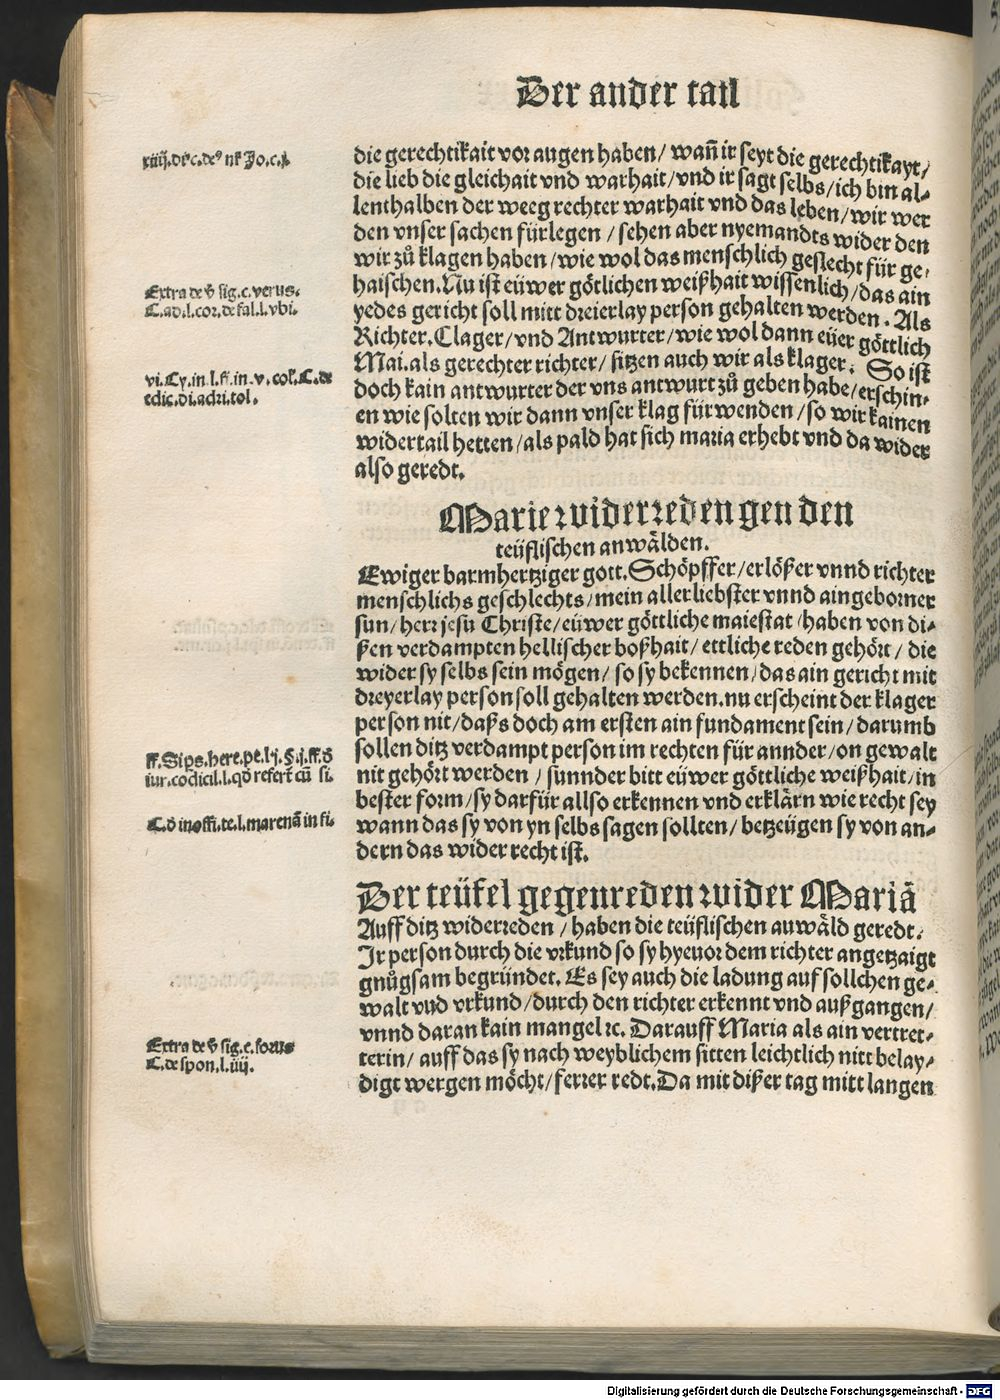 Der ander tail
xiiij.
die gerechtikait vor augen haben/ wañ ir seyt die gerechtikayt/
die lieb die gleichait vnd warhait/vnd ir sagt selbs/ich bin al-
lenthalben der weeg rechter warhait vnd das leben/wir wer
den vnser sachen fürlegen /sehen aber nyemandts wider den
wir zů klagen haben/wie wol das menschlich geslecht für ge-
Extra de v̄ sig.c.verus.
haischen.Nu ist eüwer götlichen weißhait wissenlich/das ain
C.ad.l.cor.de fal.l.vbi.
yedes gericht soll mitt dreierlay person gehalten werden. Als
Richter.Clager/vnd Antwurter/wie wol dann eüer göttlich
Mai.als gerechter richter/ sitzen auch wir als klager. So ist
vi.Cy.in l.fi.in.v.col.C.de
doch kain antwurter der vns antwurt zů geben habe/erschin-
edic.di.adri.tol.
en wie solten wir dann vnser klag fürwenden /so wir kainen
widertail hetten/als pald hat sich maria erhebt vnd da wider
also geredt.
Marie widerreden gen den
teüflischen anwälden.
Ewiger barmhertziger gott.Schöpffer/erlößer vnnd richter
menschlichs geschlechts/mein aller liebster vnnd aingeborner
sun/herr jesu Christe/eüwer göttliche maiestat/haben von di-
ßen verdampten hellischer boßhait/ettliche reden gehört/ die
wider sy selbs sein mögen/ so sy bekennen/das ain gericht mit
dreyerlay person soll gehalten werden.nu erscheint der klager
person nit/daß doch am ersten ain fundament sein/darumb
sollen ditz verdampt person im rechten für annder/on gewalt
ff.Si ps.here.pe.l.j.§.j.ff.d̄
nit gehört werden / sunnder bitt eüwer göttliche weißhait/in
iur.codicil.l.qd̄ refert cū si.
bester form/sy darfür allso erkennen vnd erklärn wie recht sey
C.d̄ inoffi.te.l.marenā in fi.
wann das sy von yn selbs sagen sollten/ betzeügen sy von an-
dern das wider recht ist.
Der teüfel gegenreden wider Mariā
Auff ditz widerreden /haben die teüflischen auwäld geredt.
Ir person durch die vrkund so sy hyeuor dem richter angetzaigt
gnůgsam begründet. Es sey auch die ladung auf sollchen ge-
walt vnd vrkund/durch den richter erkennt vnd außgangen/
vnnd daran kain mangel ꝛc. Darauff Maria als ain vertret-
Extra de v̄ sig.c.forus
terin/ auff das sy nach weyblichem sitten leichtlich nitt belay-
C.de spon.l.iiij.
digt wergen möcht/ferrer redt.Da mit dißer tag mitt langen
Digitalisierung gefördert durch die Deutsche Forschungsgemeinschaft - DFG